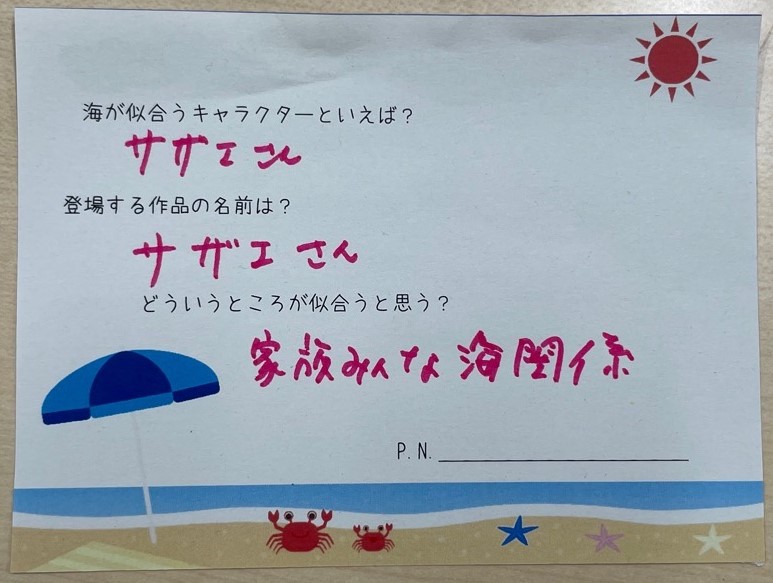 海が似合うキャラクターといえば？
サザエさん
登場する作品の名前は？
サザエさん
どういうところが似合うと思う？
家族みんな海関係
P.N.